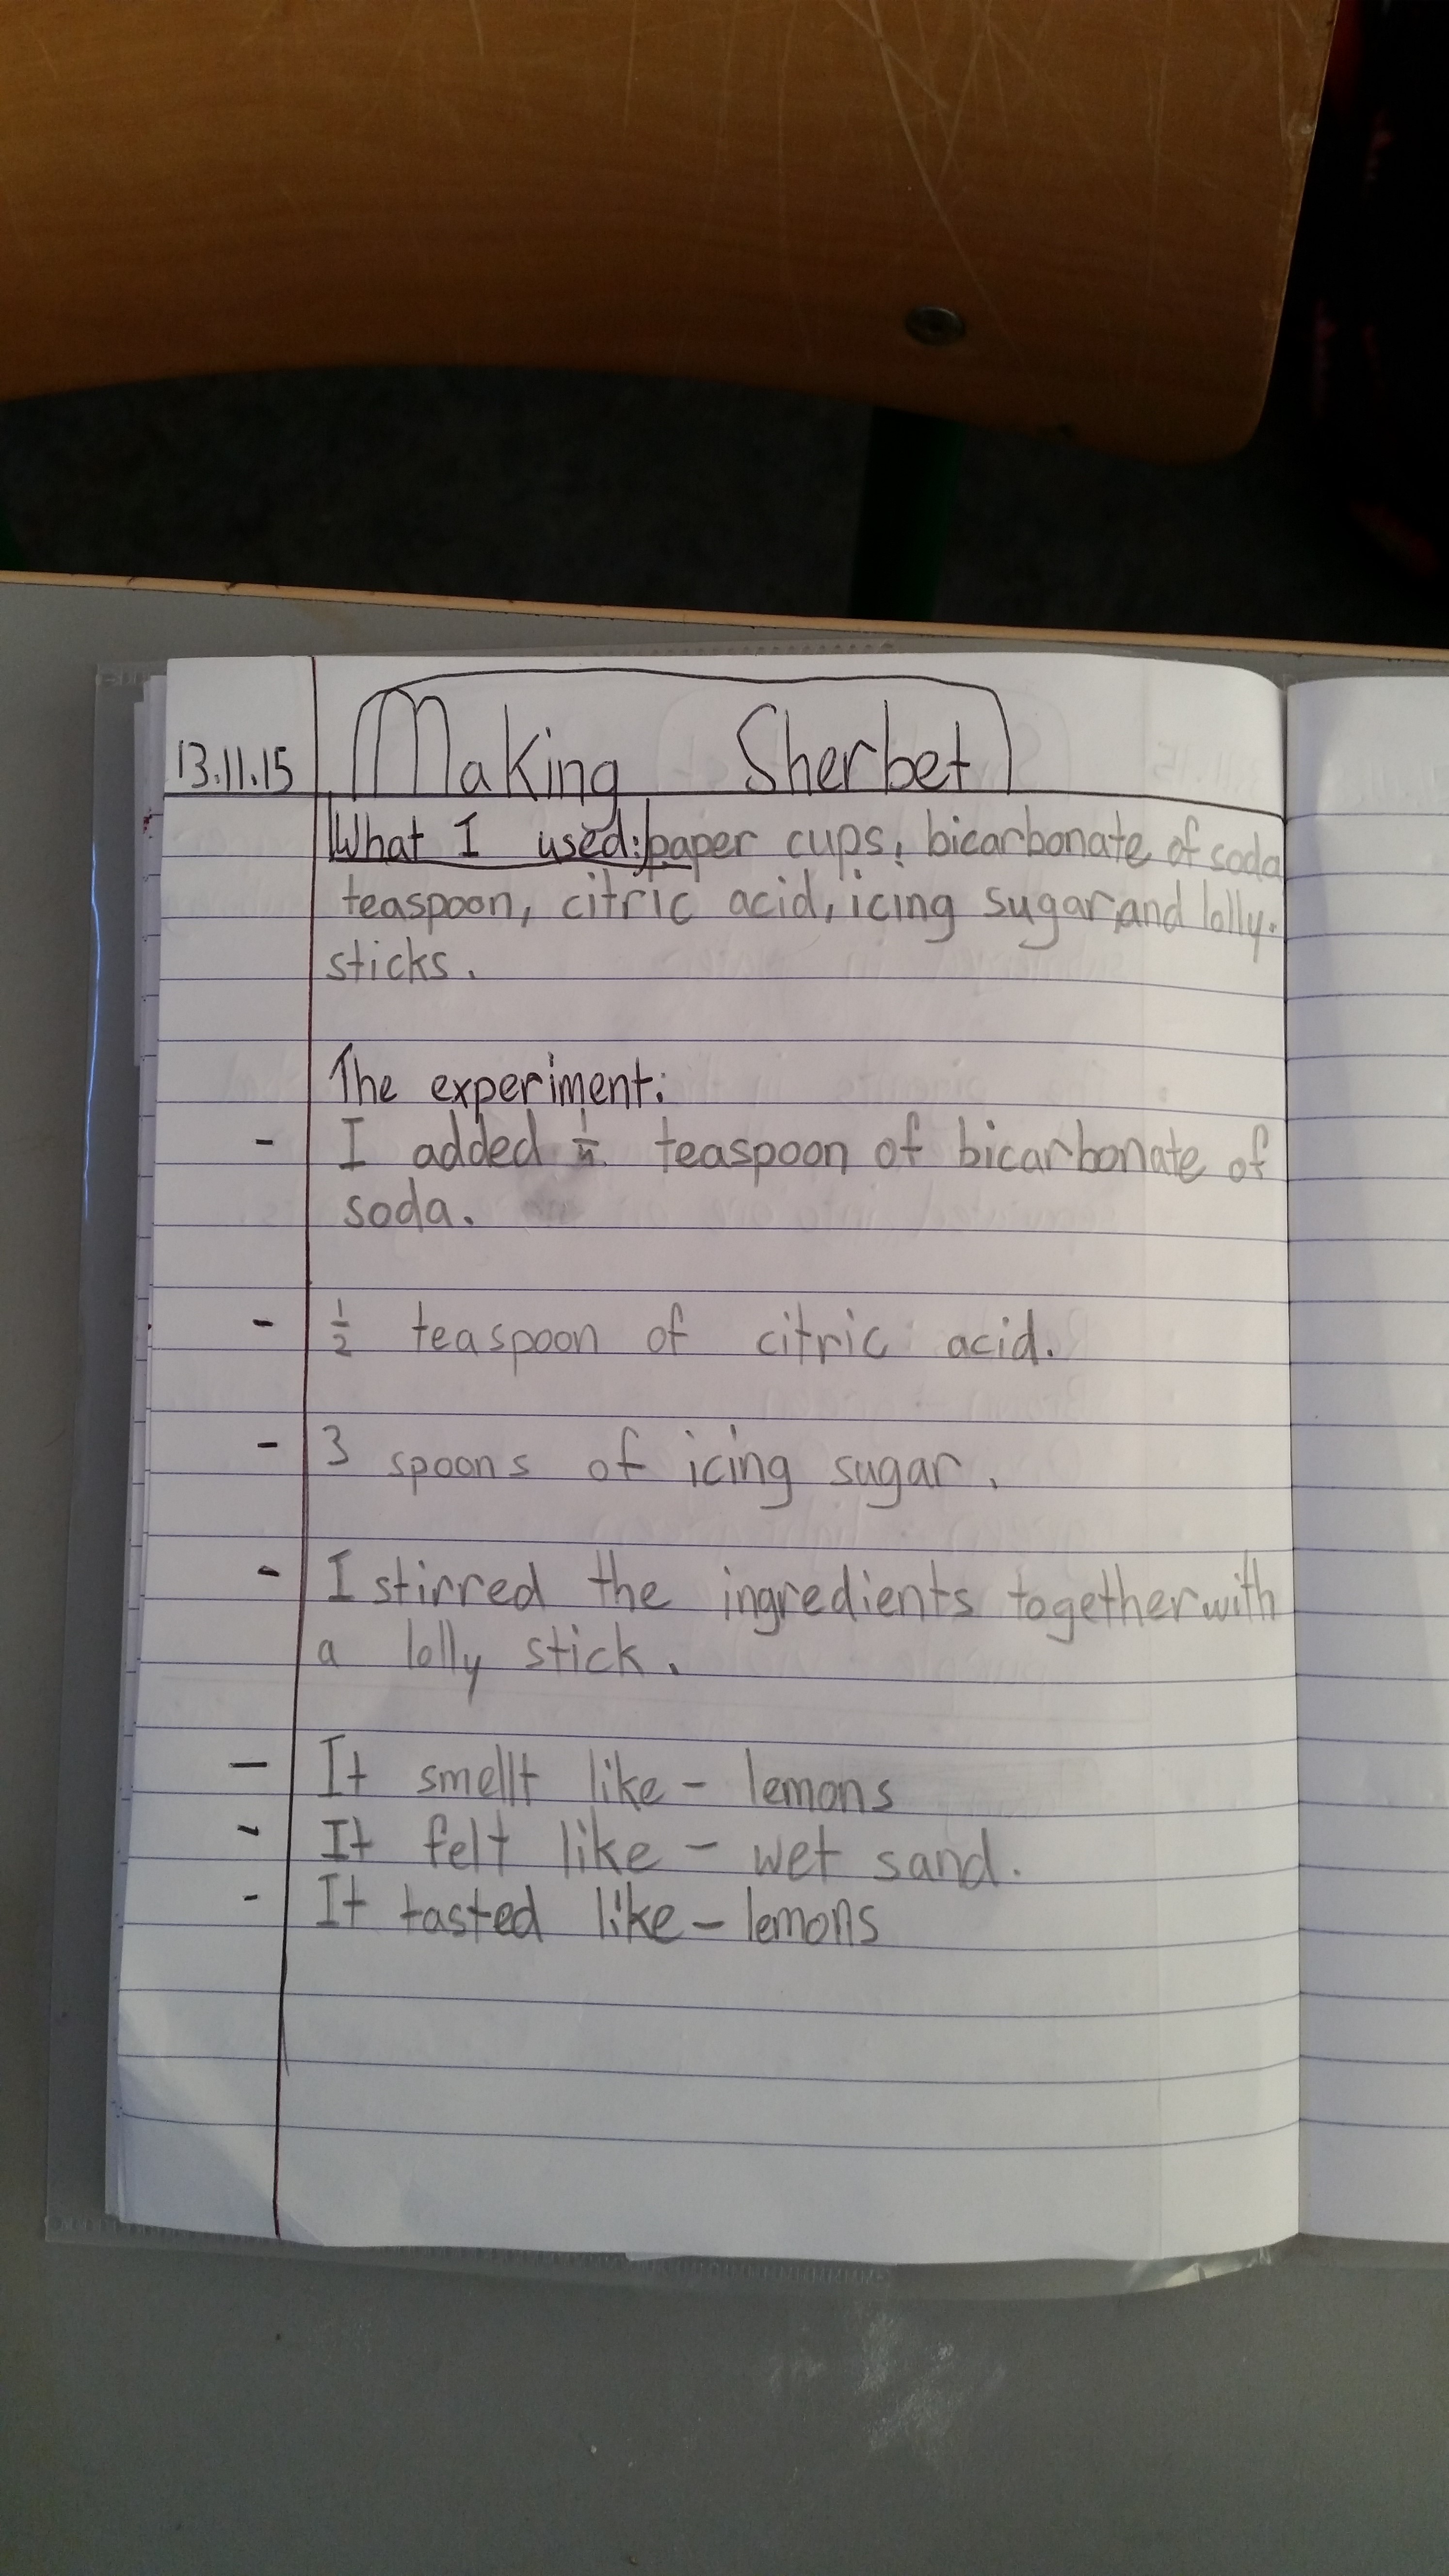 13.11.15 Making Sherbet
What I used: paper cups, bicarbonate of soda
teaspoon, citric acid, icing sugar and lolly.
sticks.
The experiment:
- I added 1/4 teaspoon of bicarbonate of
soda.
- 1/2 teaspoon of citric acid.
- 3 spoons of icing sugar.
- I stirred the ingredients together with
a lolly stick.
- It smellt like - lemons
- It felt like - wet sand.
- It tasted like - lemons